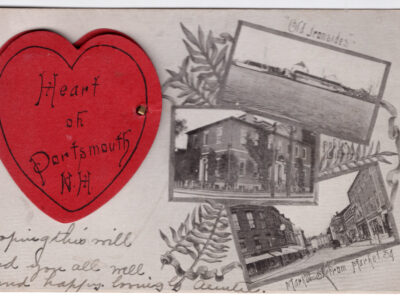 Heart
of
Portsmouth
N.H
"Old Ironsides"
Market St from Market Sq
oping this will
d you all well
and happy